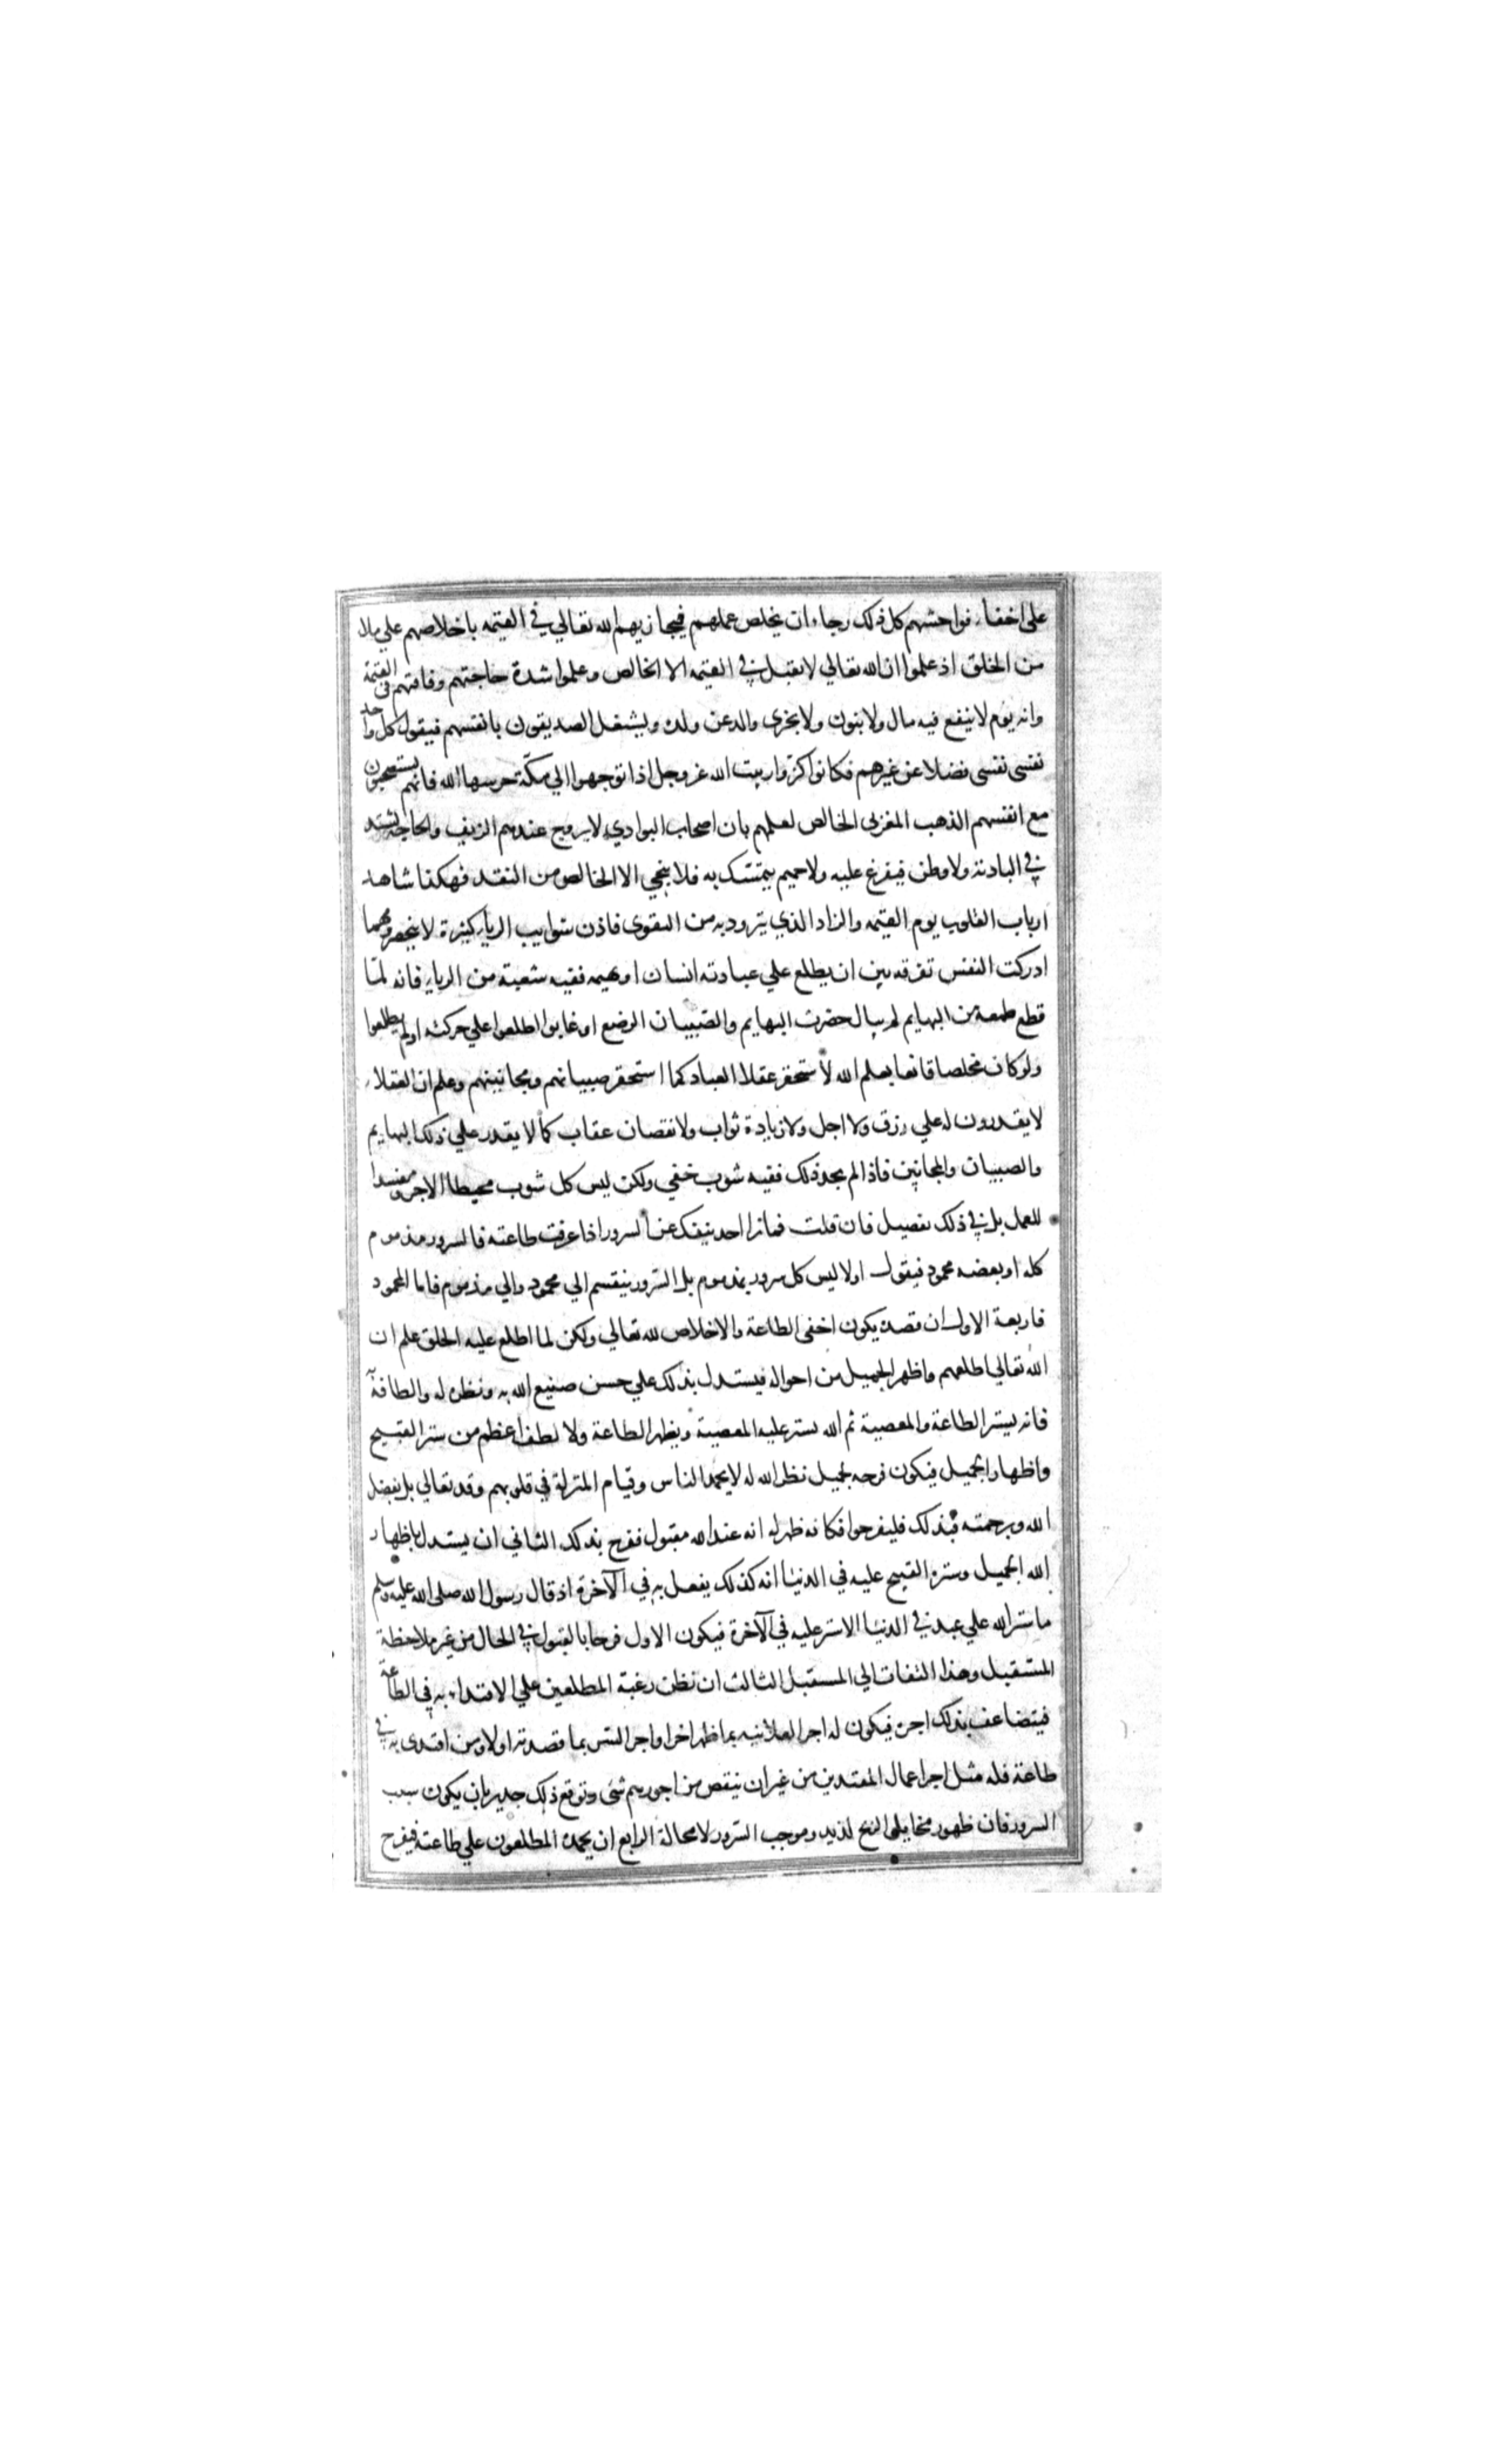 على اخفاء فواحشهم كل ذلك رجاء ان يخلص عملهم فيجازيهم الله تعالي في القيمه باخلاصهم علي ملا
من الخلق اذ علموا ان الله تعالي لا يقبل في القيمه الا الخالص وعلموا شدة حاجتهم وفاقتهم في القيمة
وانه يوم لا ينفع فيه مال ولا بنون ولا يجزى والد عن ولده ويشتغل الصديقون بانفسهم فيقول كل واحد
نفسى نفسى فضلا عن غيرهم فكانوا كزوار بيت الله عز وجل اذا توجهوا الي مكة حرسها الله فانهم يستصحبون
مع انفسهم الذهب المغربى الخالص لعلمهم بان اصحاب البوادي لا يروج عندهم الزيف والحاجة تشتد
في البادية ولا وطن يفزع عليه ولا حميم يتمسك به فلا ينجي الا الخالص من النقد فهكذا شاهد
ارباب القلوب يوم القيمه والزاد الذي يتزود به من التقوى فاذن شوايب الرياء كثيرة لا تنحصر ومهما
ادركت النفس تفرقه بين ان يطلع علي عبادته انسان او بهيمه ففيه شعبة من الرياء فانه لما
قطع طمعه من البهايم لم يبال حضرت البهايم والصبيان الرضع او غابوا اطلعوا علي حركته او لم يطلعوا
ولو كان مخلصا قانعا بعلم الله لاستحقر عقلا العباد كما استحقر صبيانهم ومجانينهم وعلم ان العقلاء
لا يقدرون له علي رزق ولا اجل ولا زيادة ثواب ولا نقصان عقاب كما لا يقدر علي ذلك البهايم
والصبيان والمجانين فاذا لم يجد ذلك ففيه شوب خفي ولكن ليس كل شوب محبطا الاجر ومفسدا
للعمل بل في ذلك تفصيل فان قلت فما نرا احد ينفك عن السرور اذا عرفت طاعته فالسرور مذموم
كله او بعضه محمود فيقول اولا ليس كل سرور بمذموم بل السرور ينقسم الي محمود والي مذموم فاما المحمود
فاربعة الاول ان قصده يكون اخفى الطاعة والاخلاص لله تعالي ولكن لما اطلع عليه الخلق علم ان
الله تعالي اطلعهم واظهر الجميل من احواله فيستدل بذلك علي حسن صنيع الله به ونظره له والطافه
فانه يستر الطاعة والمعصية ثم الله يستر عليه المعصية ويظهر الطاعة ولا لطف اعظم من ستر القبيح
واظهار الجميل فيكون فرحه بجميل نظر الله له لا بحمد الناس وقيام المنزلة في قلوبهم وقد تعالي بل بفضل
الله وبرحمته فبذلك فليفرحوا فكانه ظهر له انه عند الله مقبول ففرح بذلك الثاني ان يستدل باظهار
الله الجميل وستره القبيح عليه في الدنيا انه كذلك يفعل به في الآخرة اذ قال رسول الله صلى الله عليه وسلم
ما ستر الله علي عبد في الدنيا الا ستر عليه في الآخرة فيكون الاول فرحا بالقبول في الحال من غير ملاحظة
المستقبل وهذا التفات الي المستقبل الثالث ان نظن رغبة المطلعين علي الاقتداء به في الطاعة
فيتضاعف بذلك اجره فيكون له اجر العلانيه بما ظهر اخرا واجر السر بما قصدته اولا ومن اقتدى به في
طاعة فله مثل اجر اعمال المقتدين من غير ان ينقص من اجورهم شئ وتوقع ذلك جدير بان يكون سبب
السرور فان ظهور مخايل الربح لذيذ وموجب السرور لا محالة الرابع ان يحمده المطلعون علي طاعته فيفرح